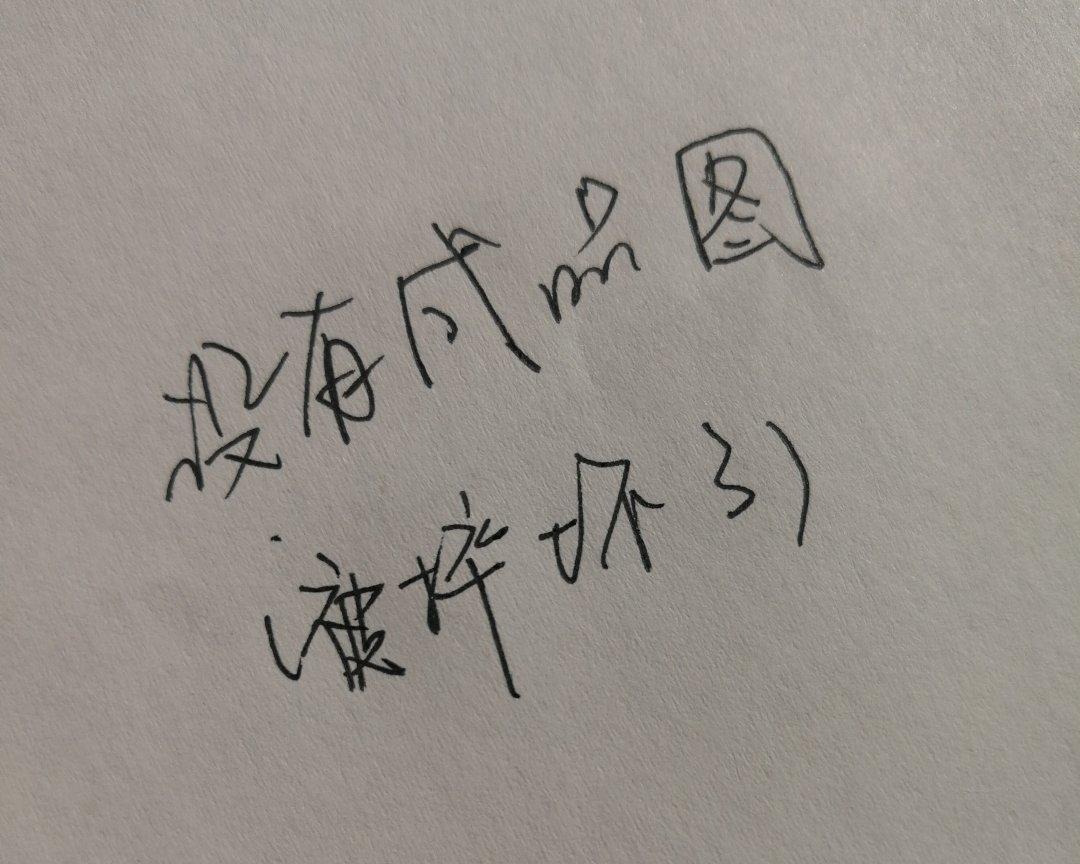 没有成品图
被摔坏了)